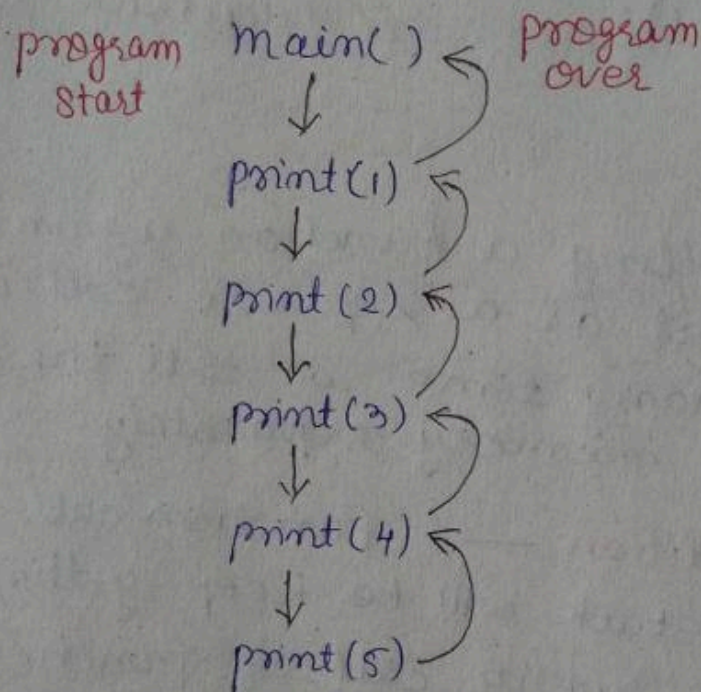 program start
main( )
program over
print(1)
print(2)
print(3)
print(4)
print(5)